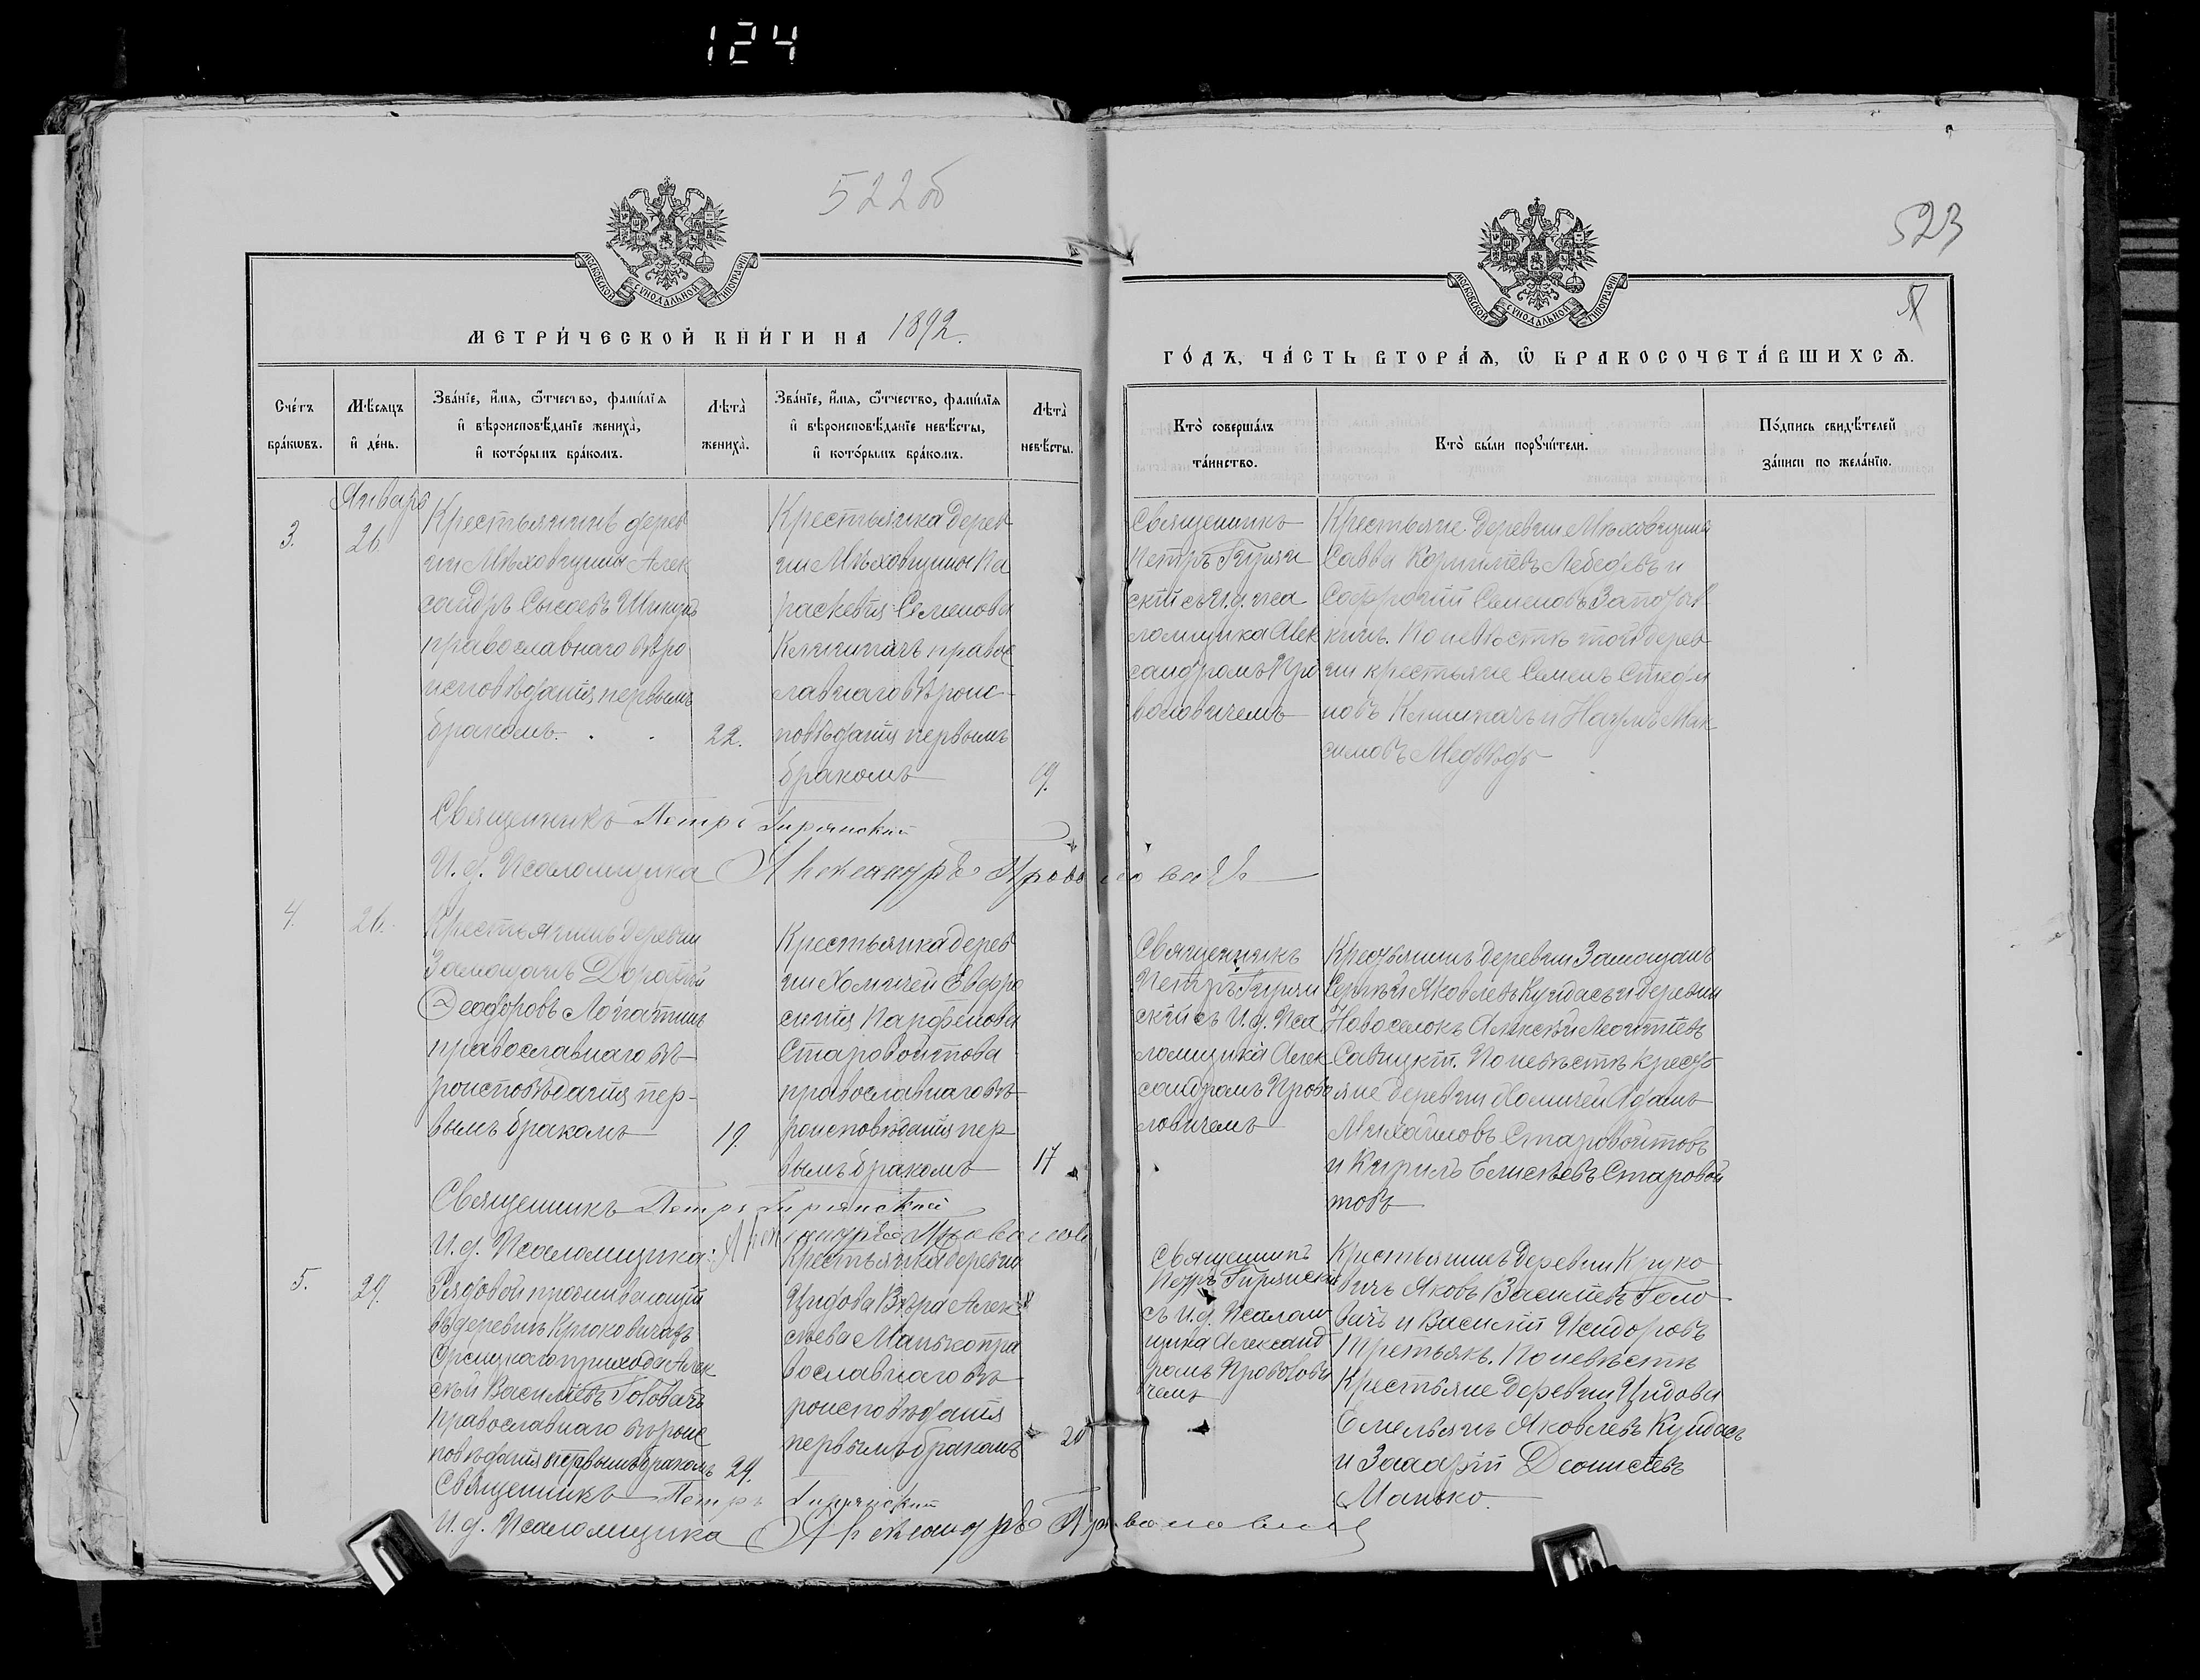 124
522об
523
МЕТРИ́ЧЕСКОЙ КНИ́ГИ НА 1892.
ГО́ДЪ, ЧА́СТЬ ВТОРА́Я, Ѡ БРАКОСОЧЕТА́ВШИХСЯ.
МОСКОВСКОЙ СУНОДАЛЬНОЙ ТИПОГРАФІИ
МОСКОВСКОЙ СУНОДАЛЬНОЙ ТИПОГРАФІИ
Сче́тъ бра́кѡвъ.
Мѣ́сяцъ и де́нь.
Зва́нїе, и́мя, ѻ́тчество, фами́лїя
и вѣроисповѣ́данїе жениха̀,
и кото́рымъ бра́комъ.
Лѣта̀ жениха̀.
Зва́нїе, и́мя, ѻ́тчество, фами́лїя
и вѣроисповѣ́данїе невѣ́сты,
и кото́рымъ бра́комъ.
Лѣта̀ невѣ́сты.
Кто̀ соверша́лъ
та́инство.
Кто̀ бы́ли порꙋчи́тели.
По́дпись свидѣ́телей
за́писи по жела́нїю.
3.
Январь
26
Крестьянинъ дерев
ни Мѣховщины Алек
сандръ Сысоевъ
православнаго вѣро
исповѣданія первымъ
бракомъ.
22.
Крестьянка дерев
ни Мѣховщины Па
раскевія Семенова
правос
лавнаго вѣроис
повѣданія первымъ
бракомъ
19.
Священникъ
Петръ Гирян
скій съ И. д. пса
ломщика Алек
сандромъ Про
воловичемъ
Крестьяне деревни Мѣховщины
Савва Корнилiевъ Лебедевъ и
Софроній Семеновъ
По невѣстѣ той дерев
ни крестьяне Семенъ Стефа
новъ и Наумъ Мак
симовъ Медвѣдь
Священникъ Петръ Гирянскій
И. д. Псаломщика Александръ Проволовичъ
4.
26.
Крестьянинъ деревни
Замощанъ Дорофей
Ѳеодоровъ Лопатинъ
православнаго вѣ
роисповѣданія пер-
вымъ бракомъ
19.
Крестьянка дерев
ни Хомичей Евфро
синія Парфенова
Старовойтова
православнаго вѣ
роисповѣданія пер
вымъ бракомъ
17
Священникъ
Петръ Гирян
скій съ И. д. Пса
ломщика Алек
сандромъ Прово
ловичемъ
Крестьянинъ деревни Замощанъ
Сергѣй Яковлевъ Куйдасъ и деревни
Новоселокъ Алексѣй Леонтіевъ
Савицкій. По невѣстѣ кресть
яне деревни Хомичей Адамъ
Михайловъ Старовойтовъ
и Кирилъ Елисѣевъ Старовой
товъ
Священникъ Петръ Гирянскій
И. д. Псаломщика: Александръ Проволовичъ
5.
29.
Рядовой проживающій
въ деревнѣ Крюковичахъ
прихода Алек
сѣй Василіевъ Головачъ
православнаго вѣроис
повѣданія первымъ бракомъ
29.
Крестьянка деревни
Цидова Вѣра Алек
сѣева Манько пра
вославнаго вѣ
роисповѣданія
первымъ бракомъ
20
Священникъ
Петръ Гирянскій
съ И. д. Псалом
щика Александ
ромъ Проволови
чемъ
Крестьянинъ деревни Крюко
вичъ Яковъ Василіевъ Голо
вачъ и Василій Исидоровъ
Третьякъ. По невѣстѣ
Крестьяне деревни Цидова
Емельянъ Яковлевъ Куйдасъ
и Захарій Діонисіевъ
Манько.
Священникъ Петръ Гирянскій
И. д. Псаломщика Александръ Проволовичъ